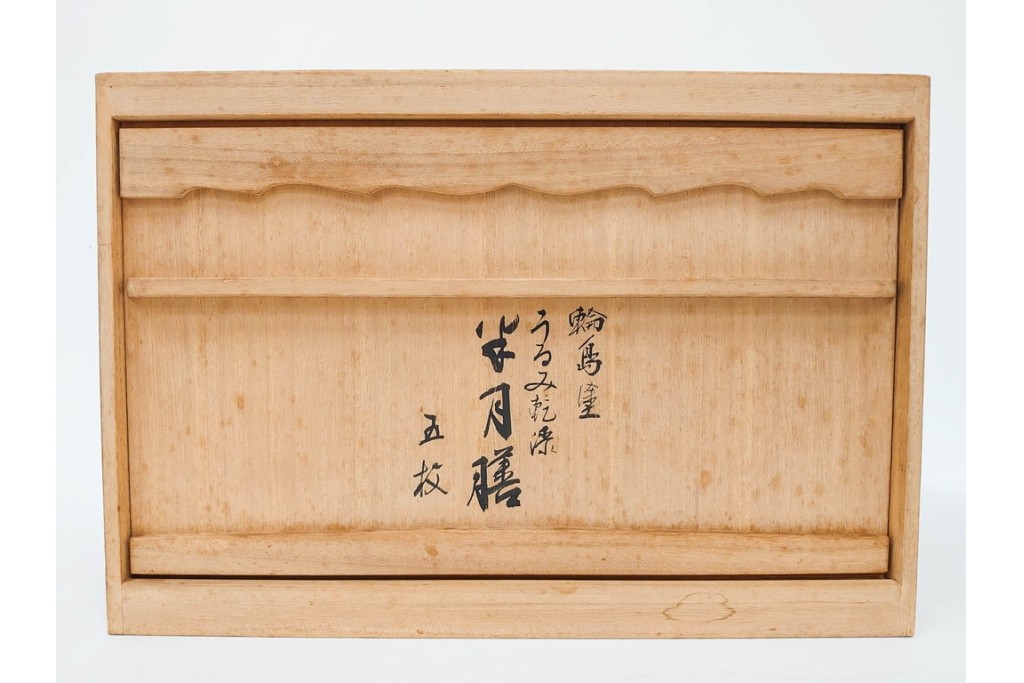 輪島塗
うるみ乾漆
半月膳
五枚